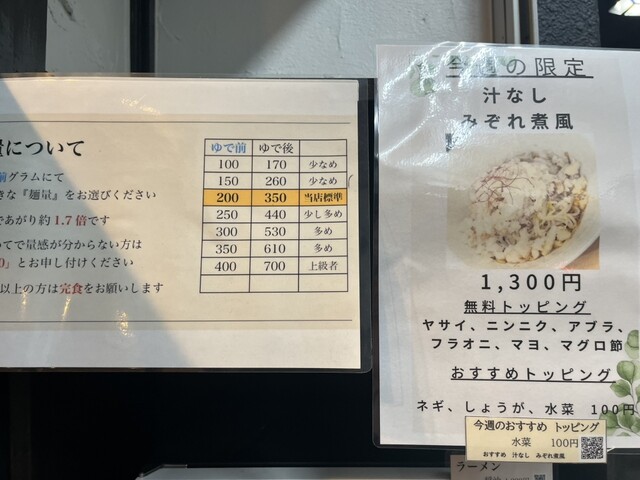 量について
前グラムにて
きな『麺量』をお選びください
であがり約1.7倍です
めてで量感が分からない方は
0」とお申し付けください
以上の方は完食をお願いします
ゆで前 ゆで後
100 170 少なめ
150 260 少なめ
200 350 当店標準
250 440 少し多め
300 530 多め
350 610 多め
400 700 上級者
今週の限定
汁なし
みぞれ煮風
1,300円
無料トッピング
ヤサイ、ニンニク、アブラ、
フラオニ、マヨ、マグロ節
おすすめトッピング
ネギ、しょうが、水菜 100円
今週のおすすめ トッピング
水菜 100円
おすすめ 汁なし みぞれ煮風
ラーメン